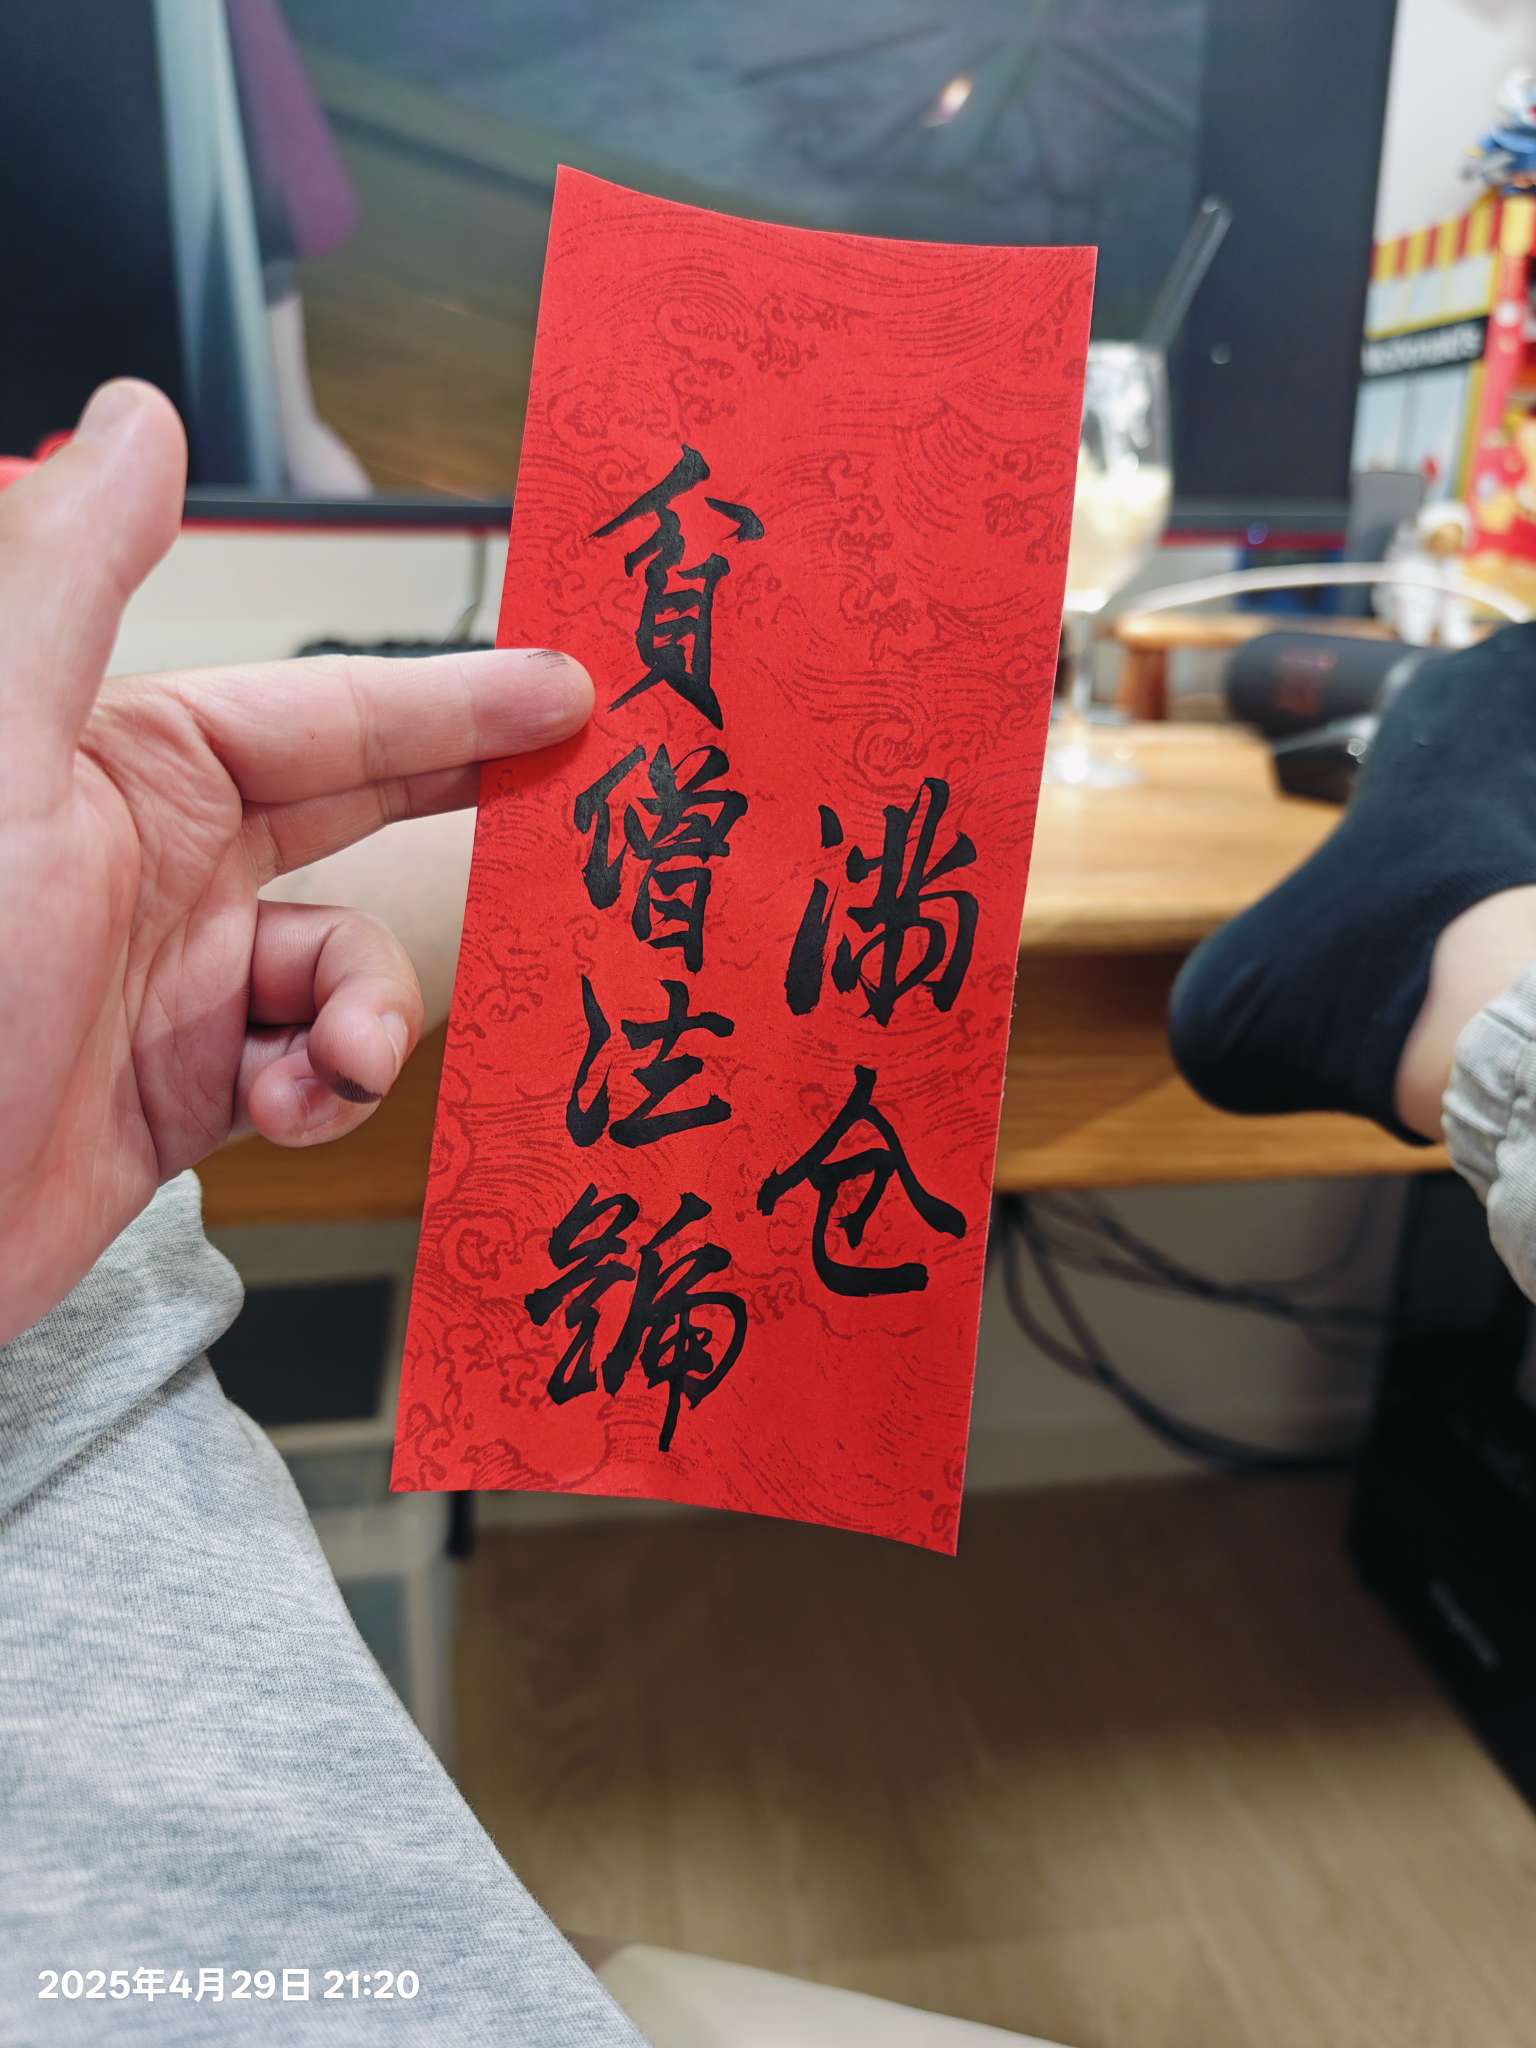 貧僧法號
满仓
2025年4月29日 21:20